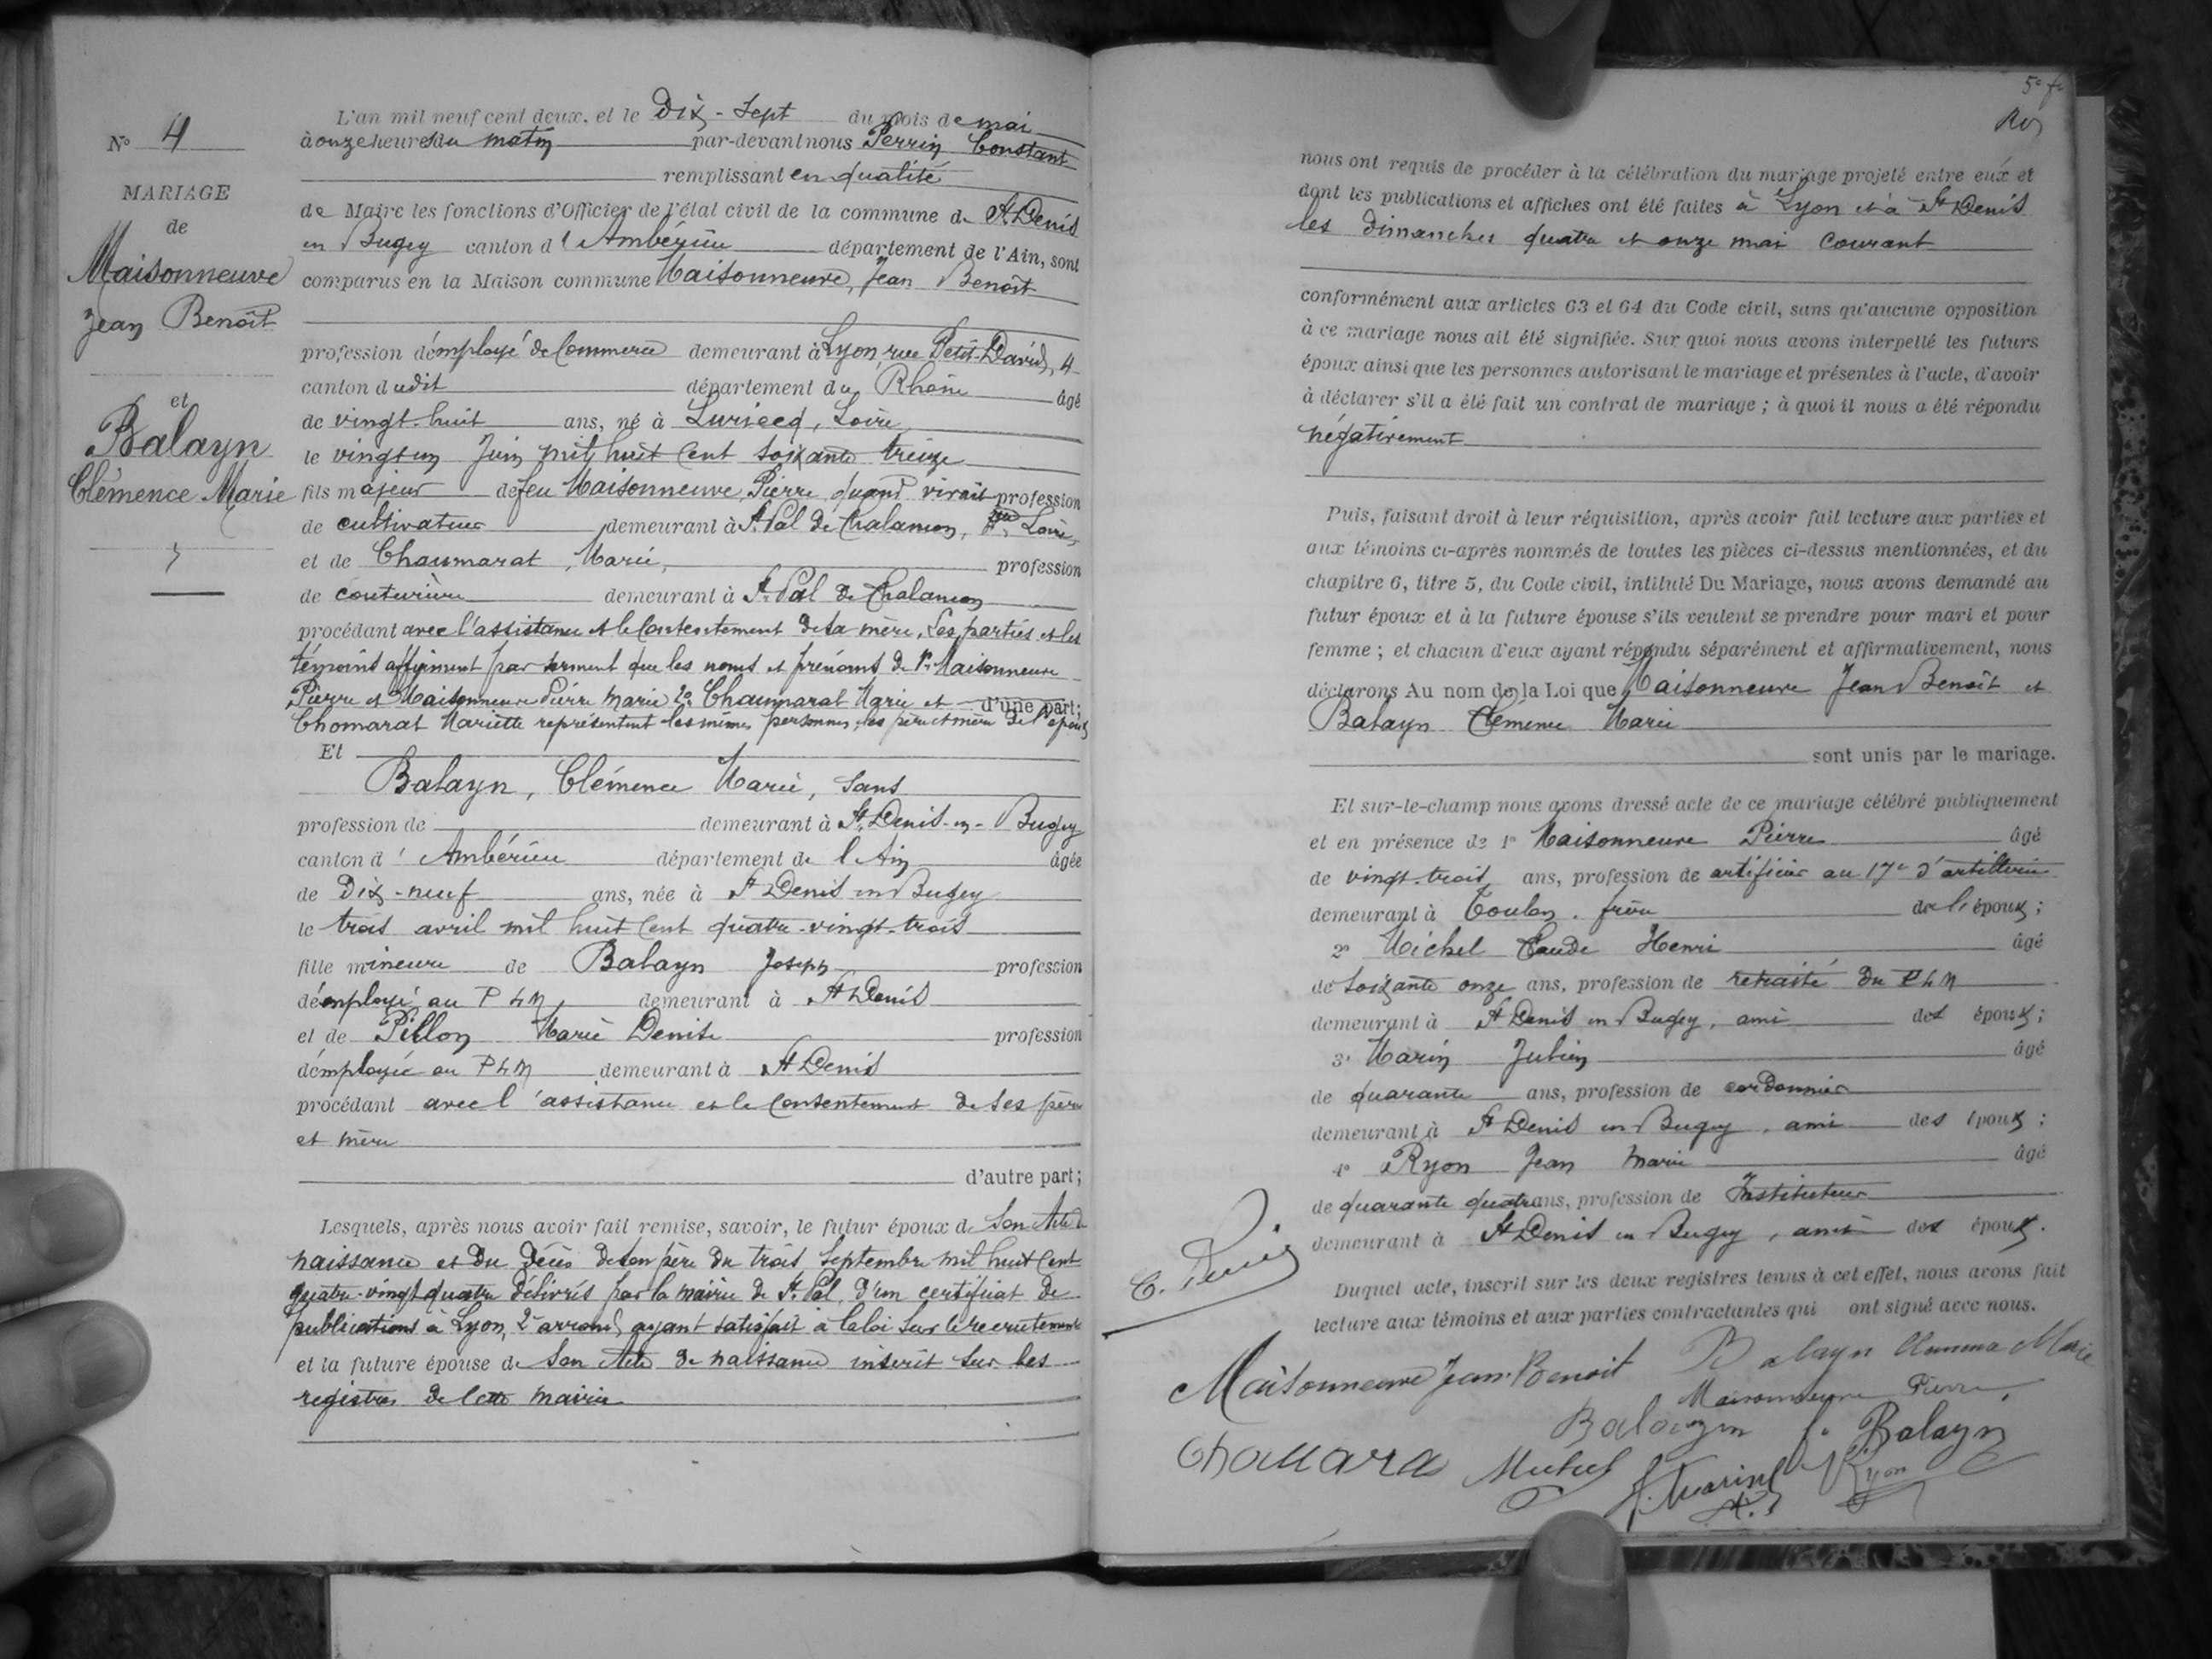 N° 4
MARIAGE
de
Maisonneuve
Jean Benoît
et
Balayn
Clémence Marie
L'an mil neuf cent deux, et le Dix-Sept du mois de mai
à onze heures du matin par-devant nous Perrin Constant
remplissant en qualité
de Maire les fonctions d'Officier de l'état civil de la commune de St Denis
en Bugey canton d'Ambérieu département de l'Ain, sont
comparus en la Maison commune Maisonneuve, Jean Benoît
profession d'employé de Commerce demeurant à Lyon, rue Petit-David, 4
canton dudit département du Rhône âgé
de vingt-huit ans, né à Luriecq, Loire,
le vingt un Juin mil huit cent soixante treize
fils majeur de feu Maisonneuve, Pierre, quand vivait profession
de cultivateur demeurant à St Pal de Chalancon, Hte Loire,
et de Chaumarat, Marie, profession
de couturière demeurant à St Pal de Chalancon
procédant avec l'assistance et le Consentement de sa mère. Les parties et les
témoins affirment par serment que les noms et prénoms de 1° Maisonneuve
Pierre et Maisonneuve Pierre Marie 2° Chaumarat Marie et d'une part;
Chomarat Mariette représentent les mêmes personnes, les père et mère de l'époux
Et
Balayn, Clémence Marie, sans
profession de demeurant à St Denis-en-Bugey
canton d'Ambérieu département de l'Ain âgée
de Dix-neuf ans, née à St Denis en Bugey
le trois avril mil huit cent quatre-vingt-trois
fille mineure de Balayn Joseph profession
d'employé au PLM, demeurant à St Denis
et de Pillon Marie Denise profession
d'employée au PLM demeurant à St Denis
procédant avec l'assistance et le Consentement de ses père
et mère
d'autre part;
Lesquels, après nous avoir fait remise, savoir, le futur époux de Son Acte de
naissance et du décès de son père du trois Septembre mil huit cent
quatre-vingt quatre délivrés par la mairie de St Pal, d'un certificat de
publications à Lyon, 2e arrond, ayant satisfait à la loi sur le recrutement
et la future épouse de Son Acte de naissance inscrit sur les
registres de cette mairie
5e f
nous ont requis de procéder à la célébration du mariage projeté entre eux et
dont les publications et affiches ont été faites à Lyon et à St Denis
les dimanches quatre et onze mai courant
conformément aux articles 63 et 64 du Code civil, sans qu'aucune opposition
à ce mariage nous ait été signifiée. Sur quoi nous avons interpellé les futurs
époux ainsi que les personnes autorisant le mariage et présentes à l'acte, d'avoir
à déclarer s'il a été fait un contrat de mariage ; à quoi il nous a été répondu
négativement
Puis, faisant droit à leur réquisition, après avoir fait lecture aux parties et
aux témoins ci-après nommés de toutes les pièces ci-dessus mentionnées, et du
chapitre 6, titre 5, du Code civil, intitulé Du Mariage, nous avons demandé au
futur époux et à la future épouse s'ils veulent se prendre pour mari et pour
femme ; et chacun d'eux ayant répondu séparément et affirmativement, nous
déclarons Au nom de la Loi que Maisonneuve Jean Benoît et
Balayn Clémence Marie
sont unis par le mariage.
Et sur-le-champ nous avons dressé acte de ce mariage célébré publiquement
et en présence de 1° Maisonneuve Pierre âgé
de vingt-trois ans, profession de artificier au 17e d'artillerie
demeurant à Toulon, frère de l'époux;
2° Michel Claude Henri âgé
de soixante onze ans, profession de retraité du PLM
demeurant à St Denis en Bugey, ami des époux;
3° Marin Julien âgé
de quarante ans, profession de cordonnier
demeurant à St Denis en Bugey, ami des époux;
4° Ryon Jean Marie âgé
de quarante quatre ans, profession de Instituteur
demeurant à St Denis en Bugey, ami des époux.
Duquel acte, inscrit sur les deux registres tenus à cet effet, nous avons fait
lecture aux témoins et aux parties contractantes qui ont signé avec nous.
C. Perrin
Maisonneuve Jean-Benoit Balayn Clemence Marie
Maisonneuve Pierre
Balayn Balayn
Michel J. Marin Ryon